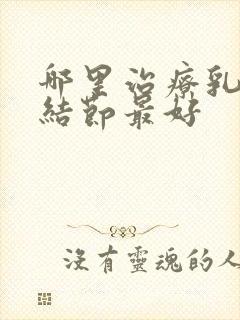 哪里治療乳
結節最好
沒有靈魂的人